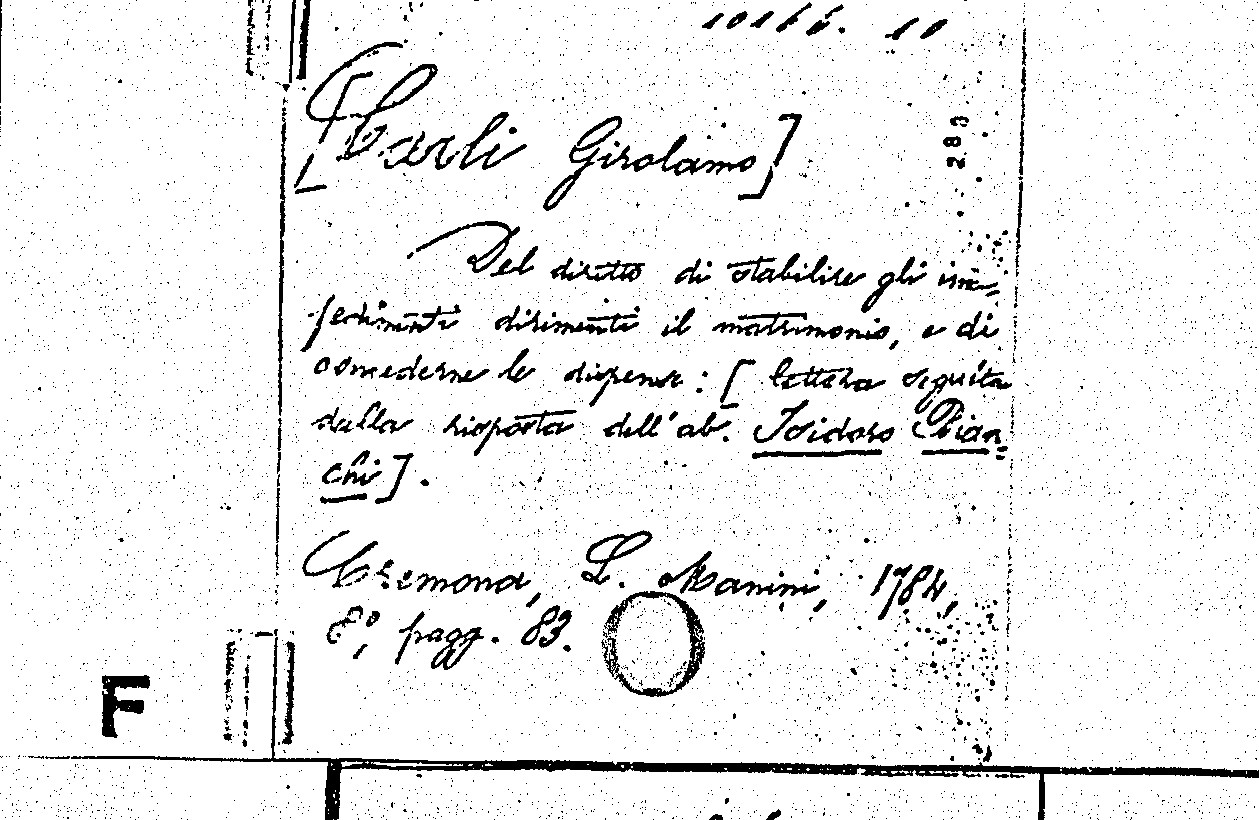 10166. 10
[Carli Girolamo]
283
Del diritto di stabilire gli im-
pedimenti dirimenti il matrimonio, e di
concederne le dispense: [lettera seguita
dalla risposta dell'ab. Isidoro Bian-
chi].
Cremona, L. Manini, 1784,
8°, pagg. 83.
F